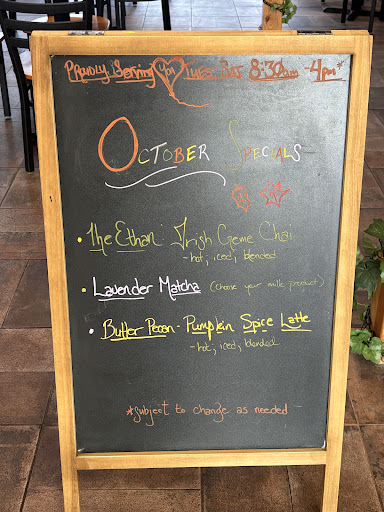 Proudly Serving you Tues-Sat 8:30am-4pm*
OCTOBER SPECIALS
• The Ethan: Irish Creme Chai
- hot, iced, blended
• Lavender Matcha (choose your milk product)
• Butter Pecan - Pumpkin Spice Latte
- hot, iced, blended
*subject to change as needed